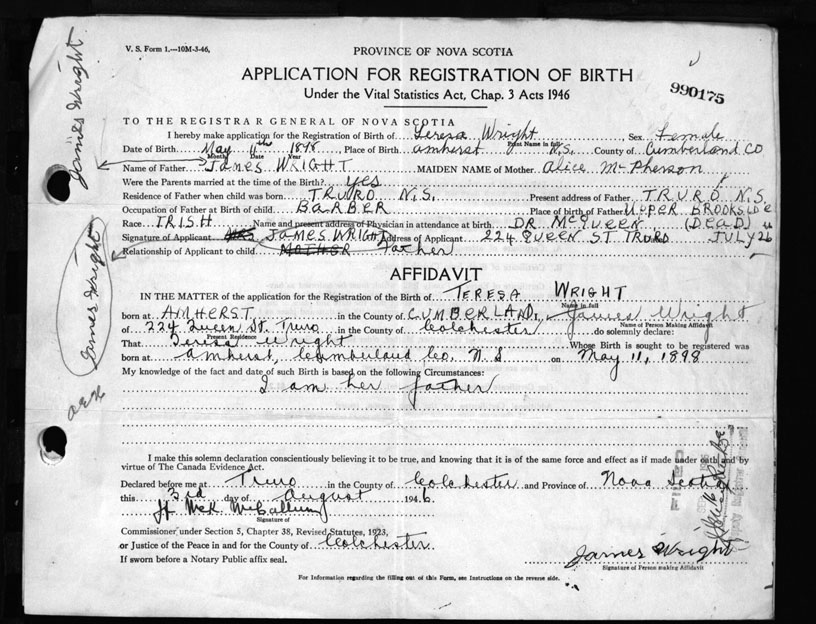 V. S. Form 1.—10M-3-46.
PROVINCE OF NOVA SCOTIA
APPLICATION FOR REGISTRATION OF BIRTH
990175
Under the Vital Statistics Act, Chap. 3 Acts 1946
James Wright
TO THE REGISTRAR GENERAL OF NOVA SCOTIA
I hereby make application for the Registration of Birth of Teresa Wright Sex Female
Print Name in full
Date of Birth May 11th 1898 Place of Birth Amherst N.S. County of Cumberland CO
Month Date Year
Name of Father JAMES WRIGHT MAIDEN NAME of Mother Alice McPherson
Were the Parents married at the time of the Birth? yes
Residence of Father when child was born TRURO N.S. Present address of Father TRURO N.S.
Occupation of Father at Birth of child BARBER Place of birth of Father UPPER BROOKSIDE
Race IRISH Name and present address of Physician in attendance at birth DR McQUEEN (DEAD)
Signature of Applicant JAMES WRIGHT Address of Applicant 224 QUEEN ST TRURO JULY 26
Relationship of Applicant to child MOTHER Father
James Wright
AFFIDAVIT
IN THE MATTER of the application for the Registration of the Birth of TERESA WRIGHT
Name in full
born at AMHERST in the County of CUMBERLAND, James Wright
Name of Person Making Affidavit
of 224 Queen St. Truro in the County of Colchester do solemnly declare:
Present Residence
That Teresa Wright Whose Birth is sought to be registered was
born at Amherst, Cumberland Co. N.S. on May 11, 1898
My knowledge of the fact and date of such Birth is based on the following Circumstances:
I am her father
I make this solemn declaration conscientiously believing it to be true, and knowing that it is of the same force and effect as if made under oath and by
virtue of The Canada Evidence Act.
Declared before me at Truro in the County of Colchester and Province of Nova Scotia
this 3rd day of August 1946
H McK McCallum
Signature of
Commissioner under Section 5, Chapter 38, Revised Statutes, 1923,
or Justice of the Peace in and for the County of Colchester
If sworn before a Notary Public affix seal.
James Wright
Signature of Person making Affidavit
For Information regarding the filling out of this Form, see Instructions on the reverse side.